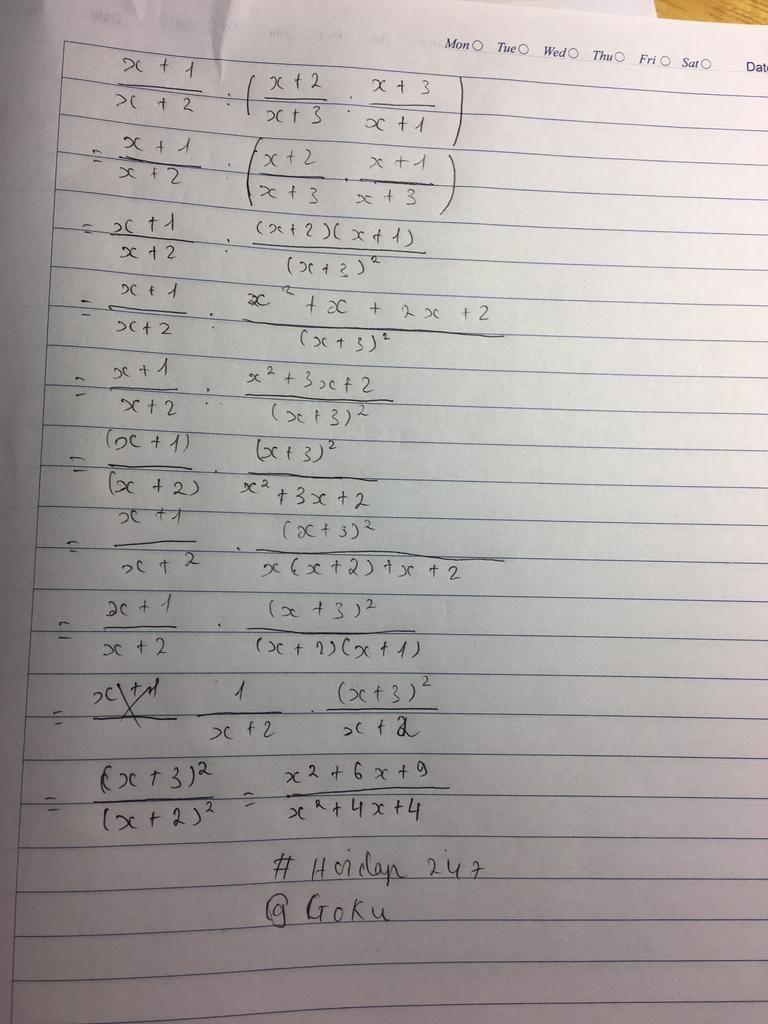 Mon Tue Wed Thu Fri Sat Date
x + 1 / x + 2 : ( x + 2 / x + 3 : x + 3 / x + 1 )
= x + 1 / x + 2 : ( x + 2 / x + 3 . x + 1 / x + 3 )
= x + 1 / x + 2 : (x + 2)(x + 1) / (x + 3)²
= x + 1 / x + 2 : x² + x + 2x + 2 / (x + 3)²
= x + 1 / x + 2 : x² + 3x + 2 / (x + 3)²
= (x + 1) / (x + 2) . (x + 3)² / x² + 3x + 2
= x + 1 / x + 2 . (x + 3)² / x(x + 2) + x + 2
= x + 1 / x + 2 . (x + 3)² / (x + 2)(x + 1)
= 1 / x + 2 . (x + 3)² / x + 2
= (x + 3)² / (x + 2)² = x² + 6x + 9 / x² + 4x + 4
# Hoidap 247
@ Goku